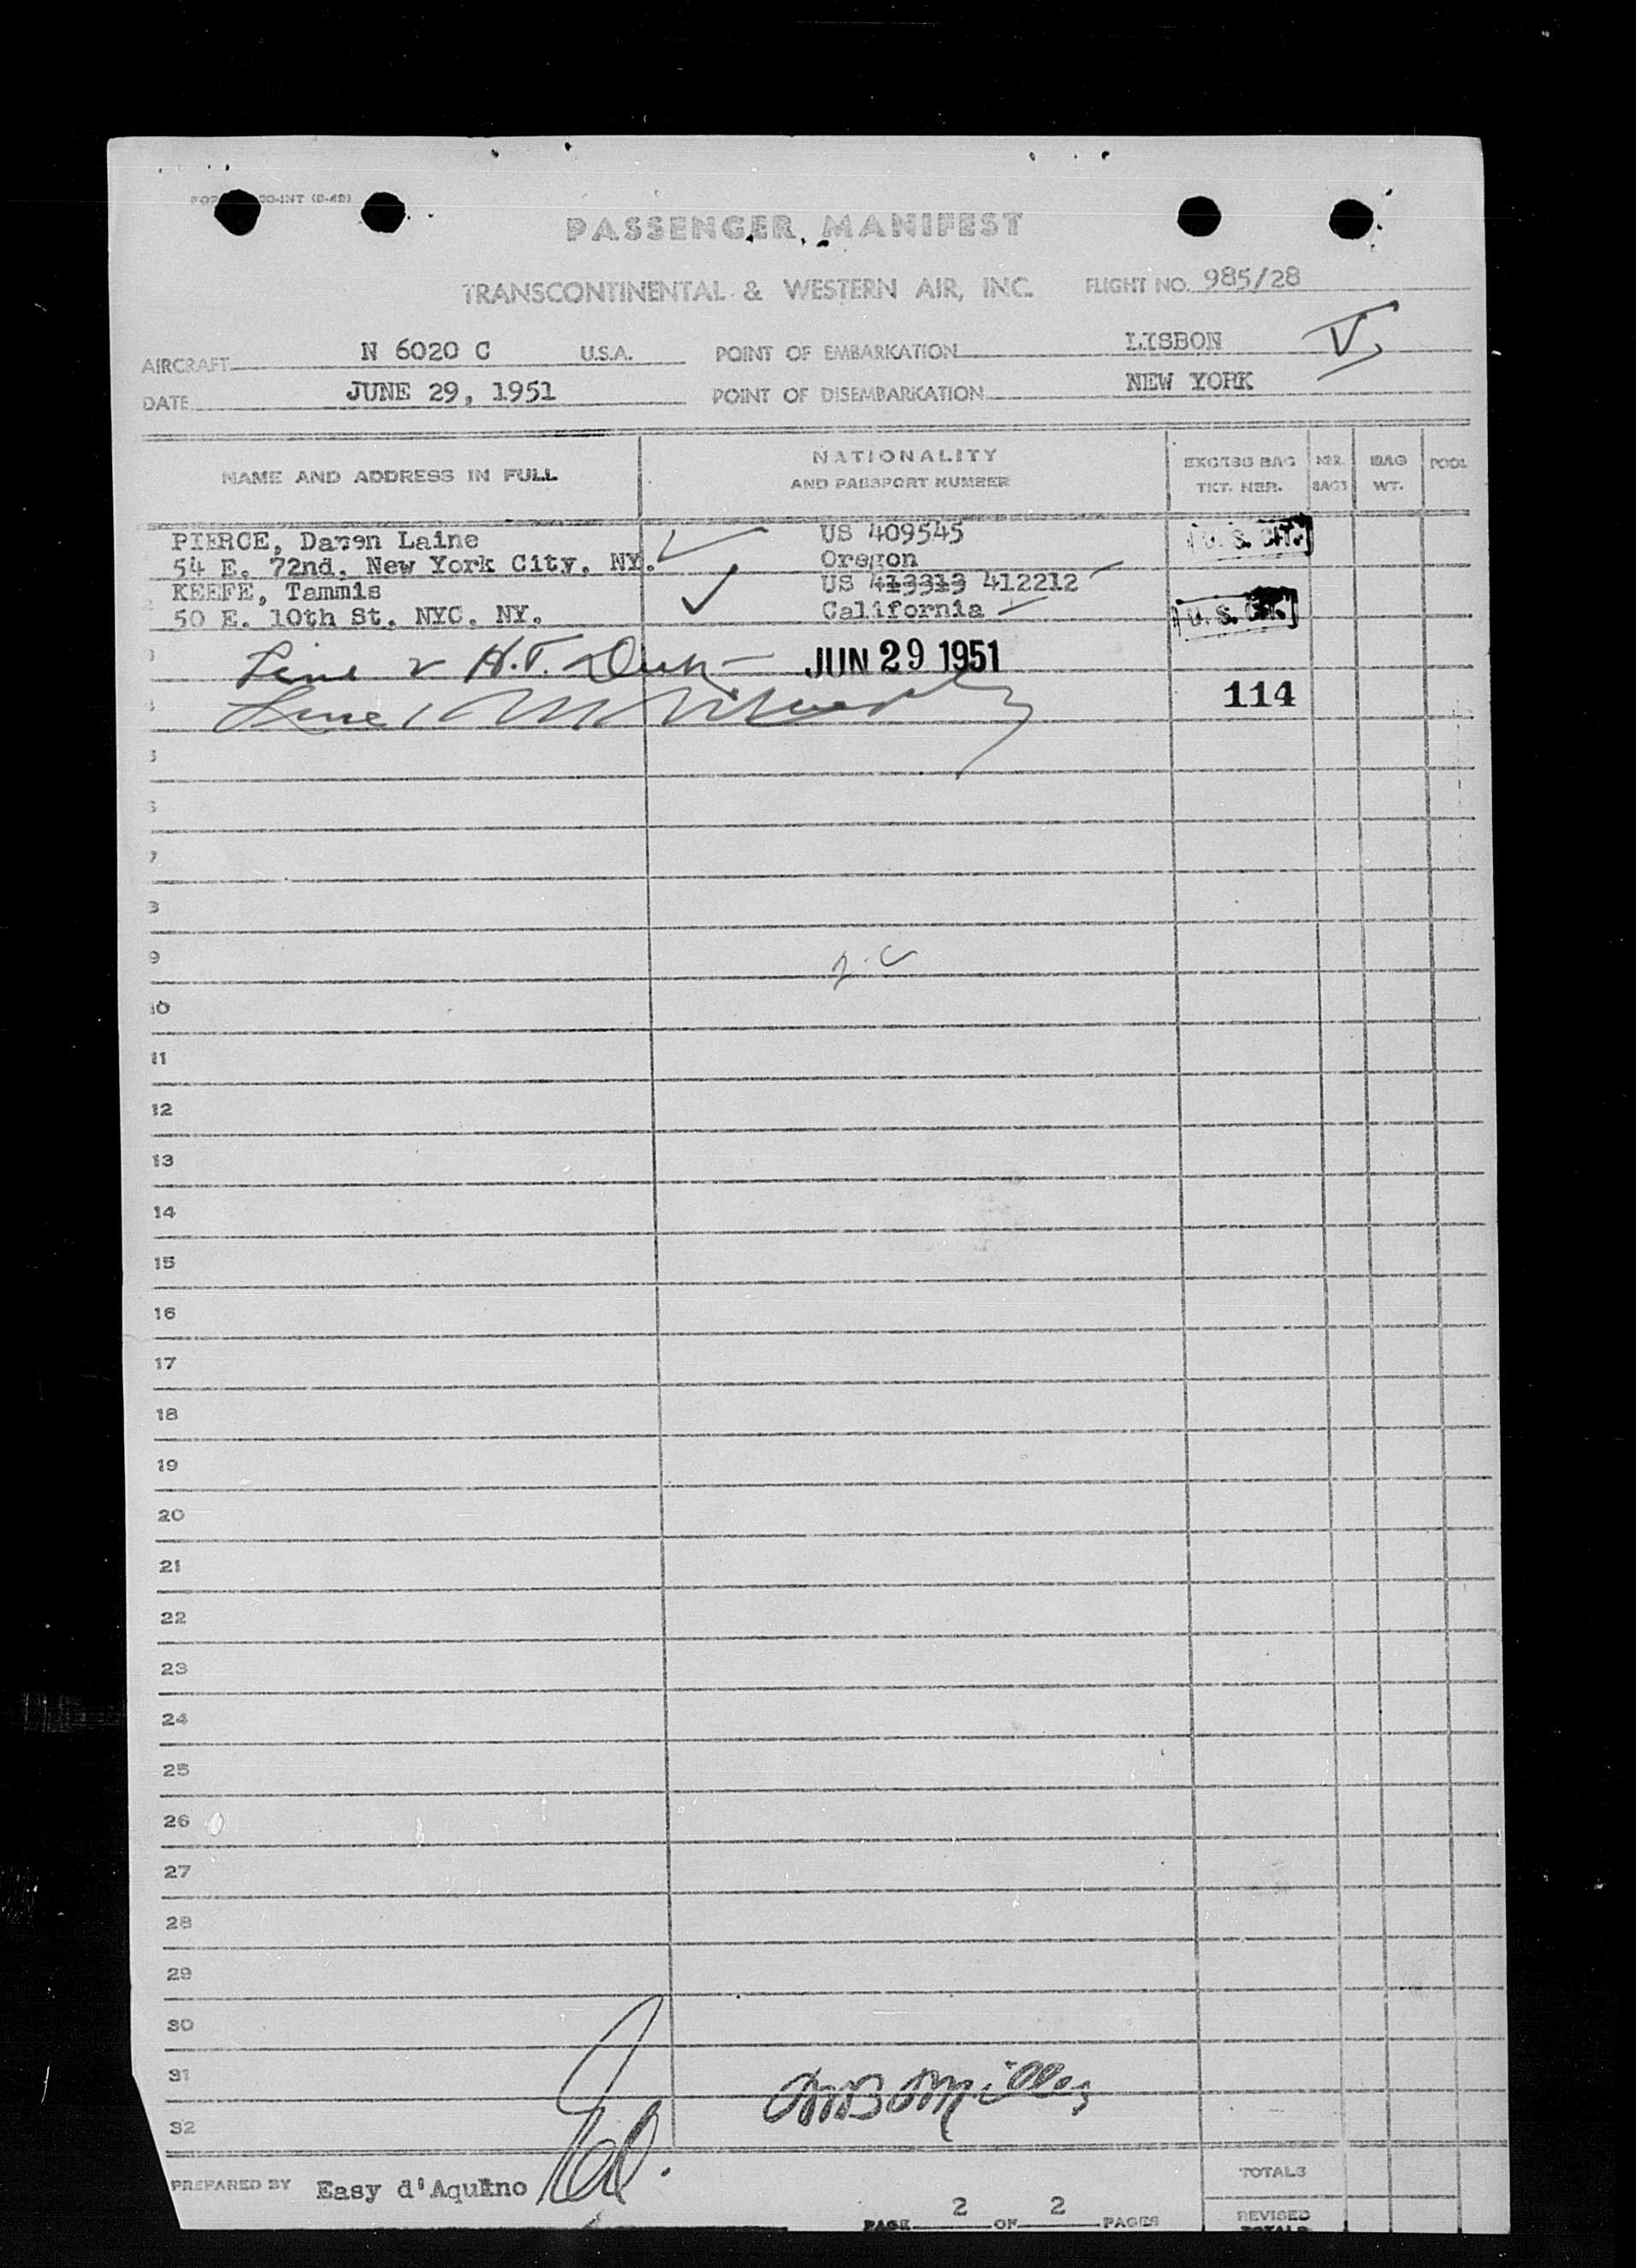 PASSENGER MANIFEST
TRANSCONTINENTAL & WESTERN AIR, INC. FLIGHT NO. 985/28
AIRCRAFT N 6020 C U.S.A. POINT OF EMBARKATION LISBON
DATE JUNE 29, 1951 POINT OF DISEMBARKATION NEW YORK
NAME AND ADDRESS IN FULL NATIONALITY AND PASSPORT NUMBER EXCESS BAG TKT. NBR. NBR. BAGS BAG WT. POOL
PIERCE, Laine US 409545 U. S. CIT.
54 E. 72nd, New York City, NY. Oregon
KEEFE, Tammis US 413313 412212
2 50 E. 10th St. NYC, NY. California U. S. CIT.
Line 2 H.T. JUN 29 1951
Line 1 114
5
6
7
8
9
10
11
12
13
14
15
16
17
18
19
20
21
22
23
24
25
26
27
28
29
30
31
32
PREPARED BY Easy d'Aquino TOTALS
PAGE 2 OF 2 PAGES REVISED TOTALS